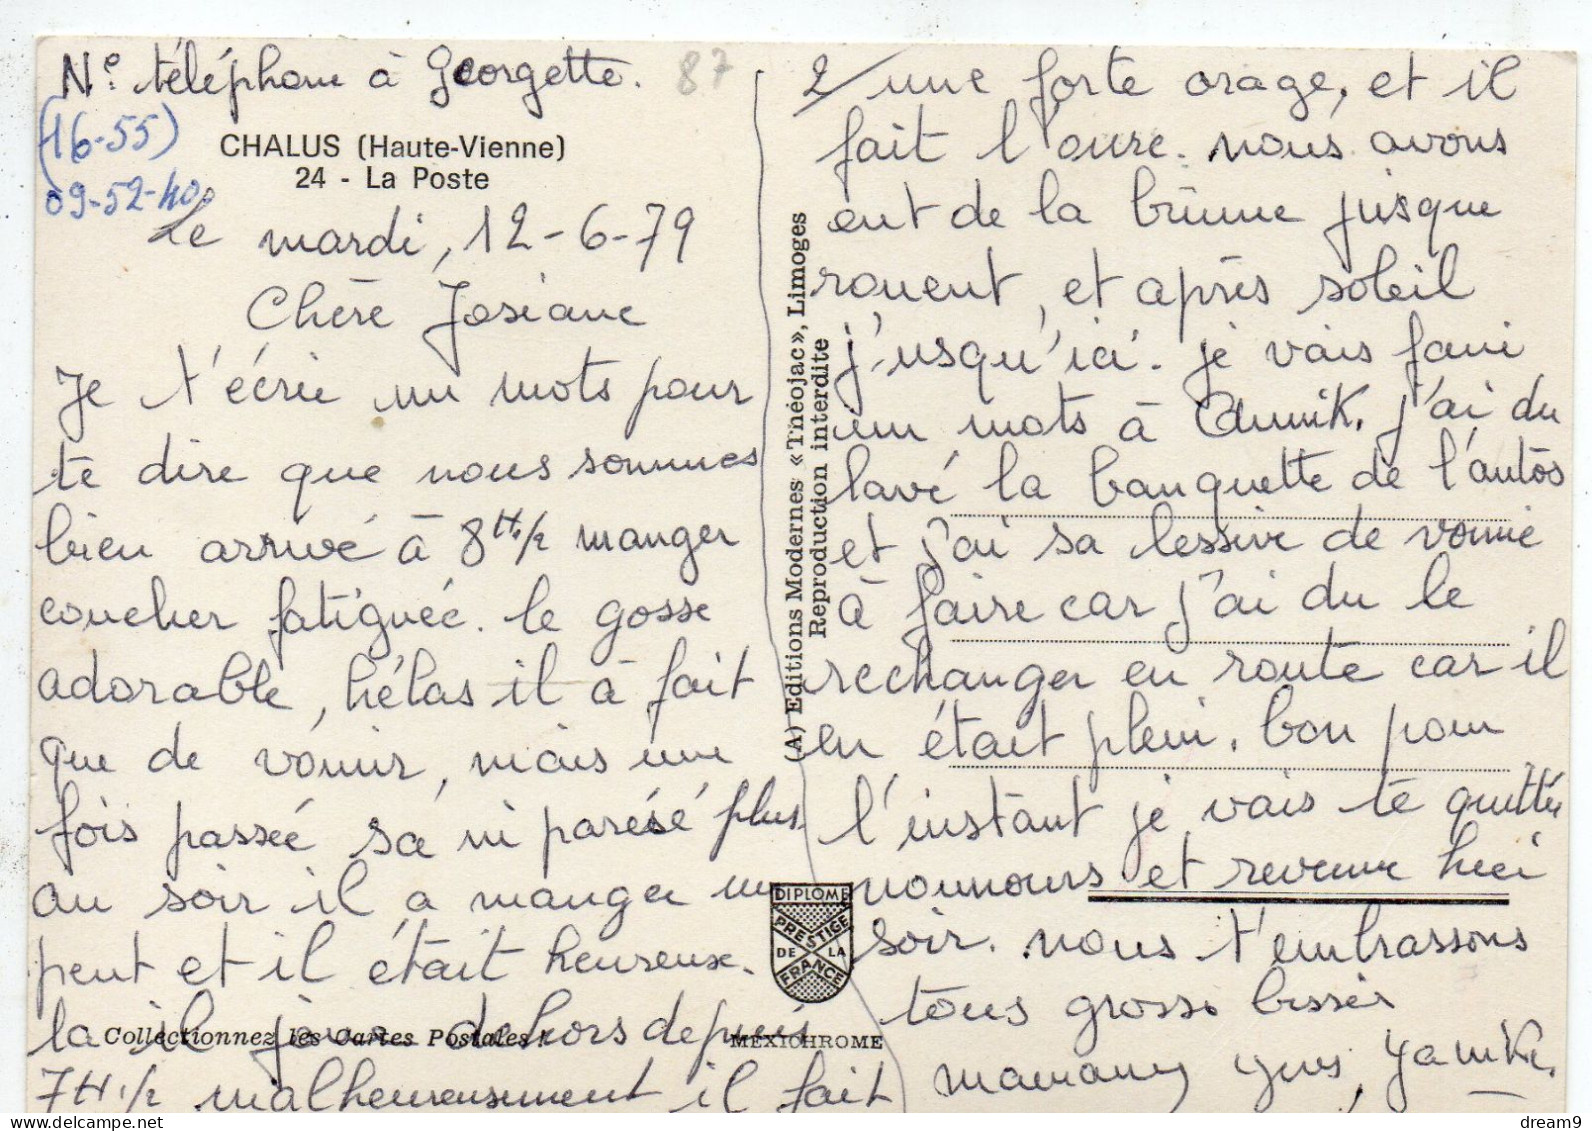 N° téléphone à Georgette. 87
(16-55)
09-52-40
CHALUS (Haute-Vienne)
24 - La Poste
Le mardi, 12-6-79
Chère Josiane
Je t'écrie un mots pour
te dire que nous sommes
bien arrivé à 8H1/2 manger
coucher fatiguée. le gosse
adorable, hélas il à fait
que de vomir, mais une
fois passée sa ni paresé plus
au soir il a manger un
peut et il était heureuse.
la il joue dehors depuis
7H1/2 malheureusement il fait
2/ une forte orage, et il
fait lourre. nous avons
eut de la brume jusque
rouent, et après soleil
j'usqu'ici. je vais faire
un mots à Annik. j'ai du
lavé la banquette de l'autos
et j'ai sa lessive de vomie
à faire car j'ai du le
rechanger en route car il
en était plein. bon pour
l'instant je vais te quittée
nounours et revenue hier
soir. nous t'embrassons
tous grosse bisser
maman Yves, Yannik.
(A) Editions Modernes « Théojac », Limoges
Reproduction interdite
DIPLOME
PRESTIGE
DE LA
FRANCE
Collectionnez les Cartes Postales !
MEXICHROME
www.delcampe.net
dream9